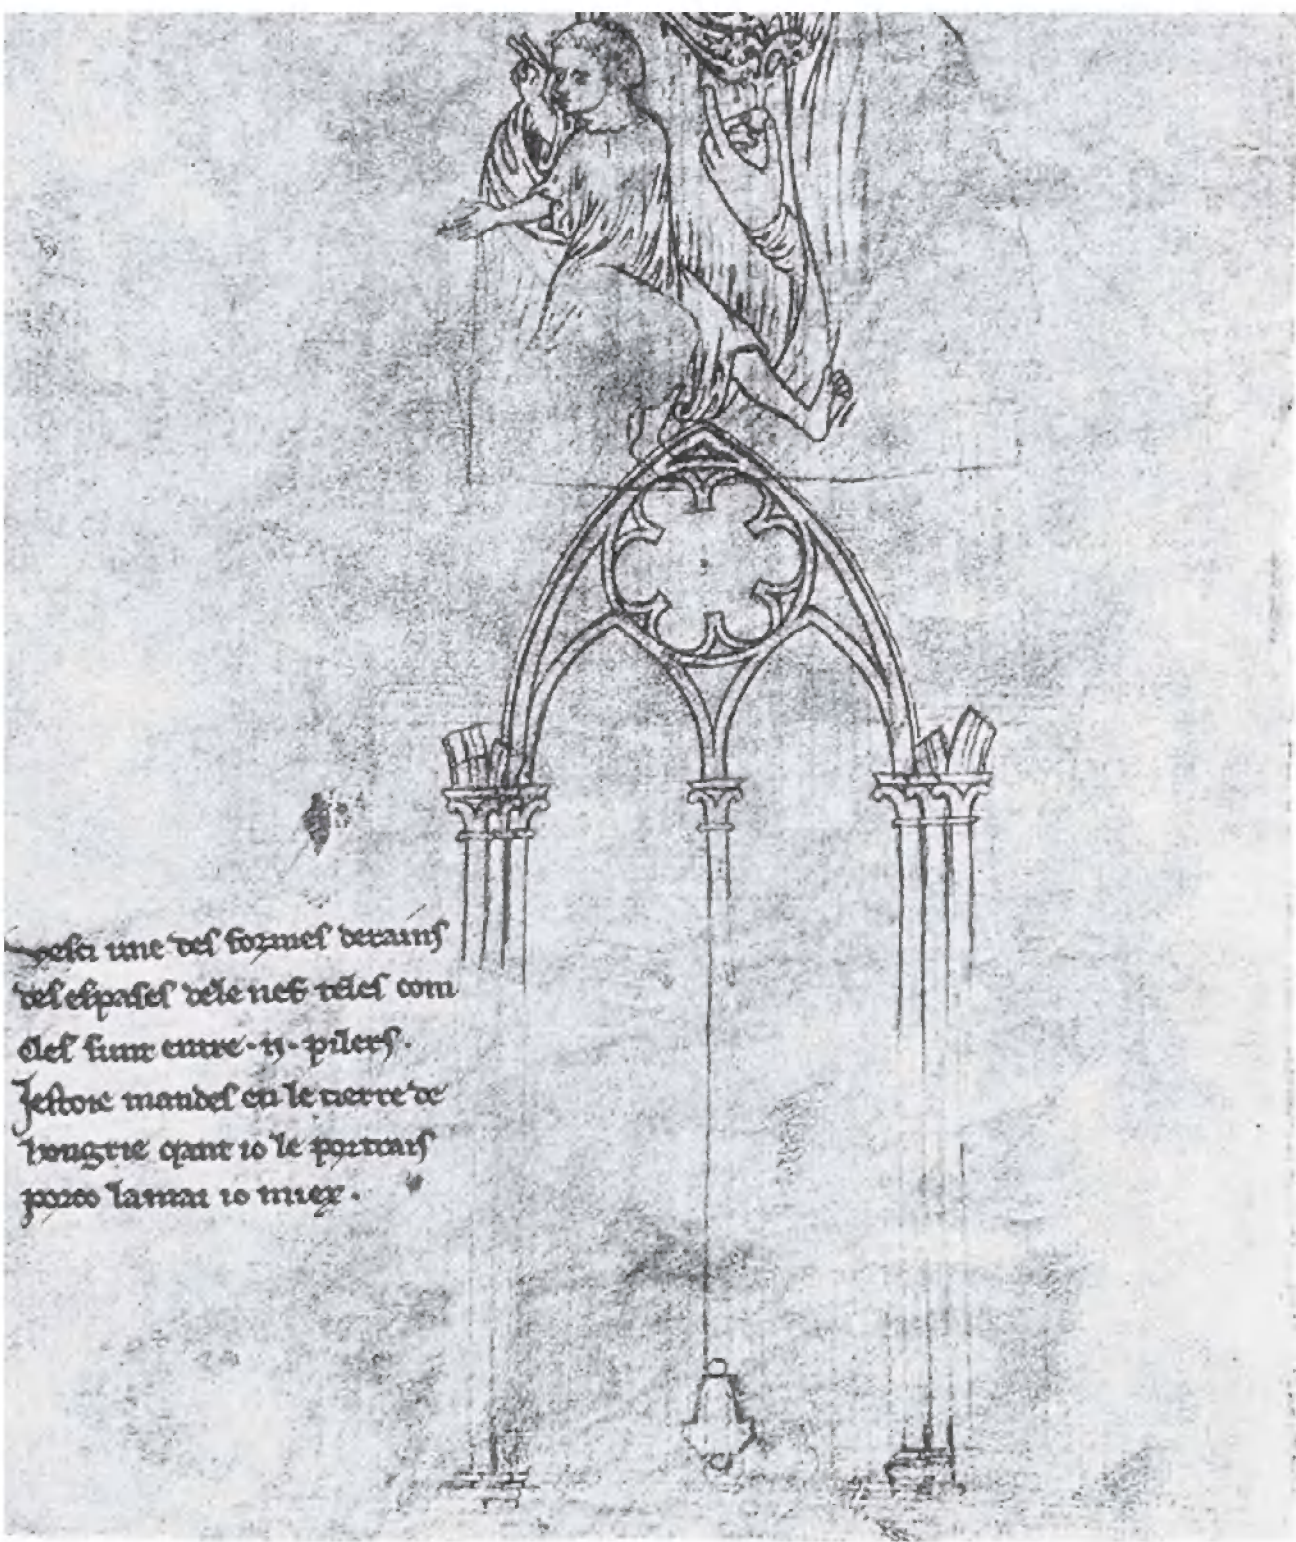 Vesci une des formes derains
des espases dele nef teles com
eles sunt entre · ij · pilers ·
Jestoie mandes en le tierre de
hongrie qant io le portrais
porco lamai io miex ·